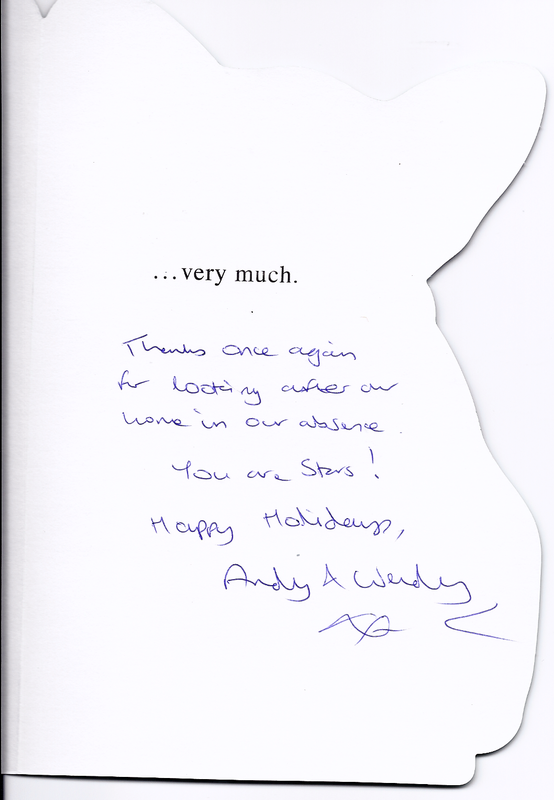 ...very much.
Thanks once again
for looking after our
home in our absence.
You are Stars!
Happy Holidays,
Andy & Wendy